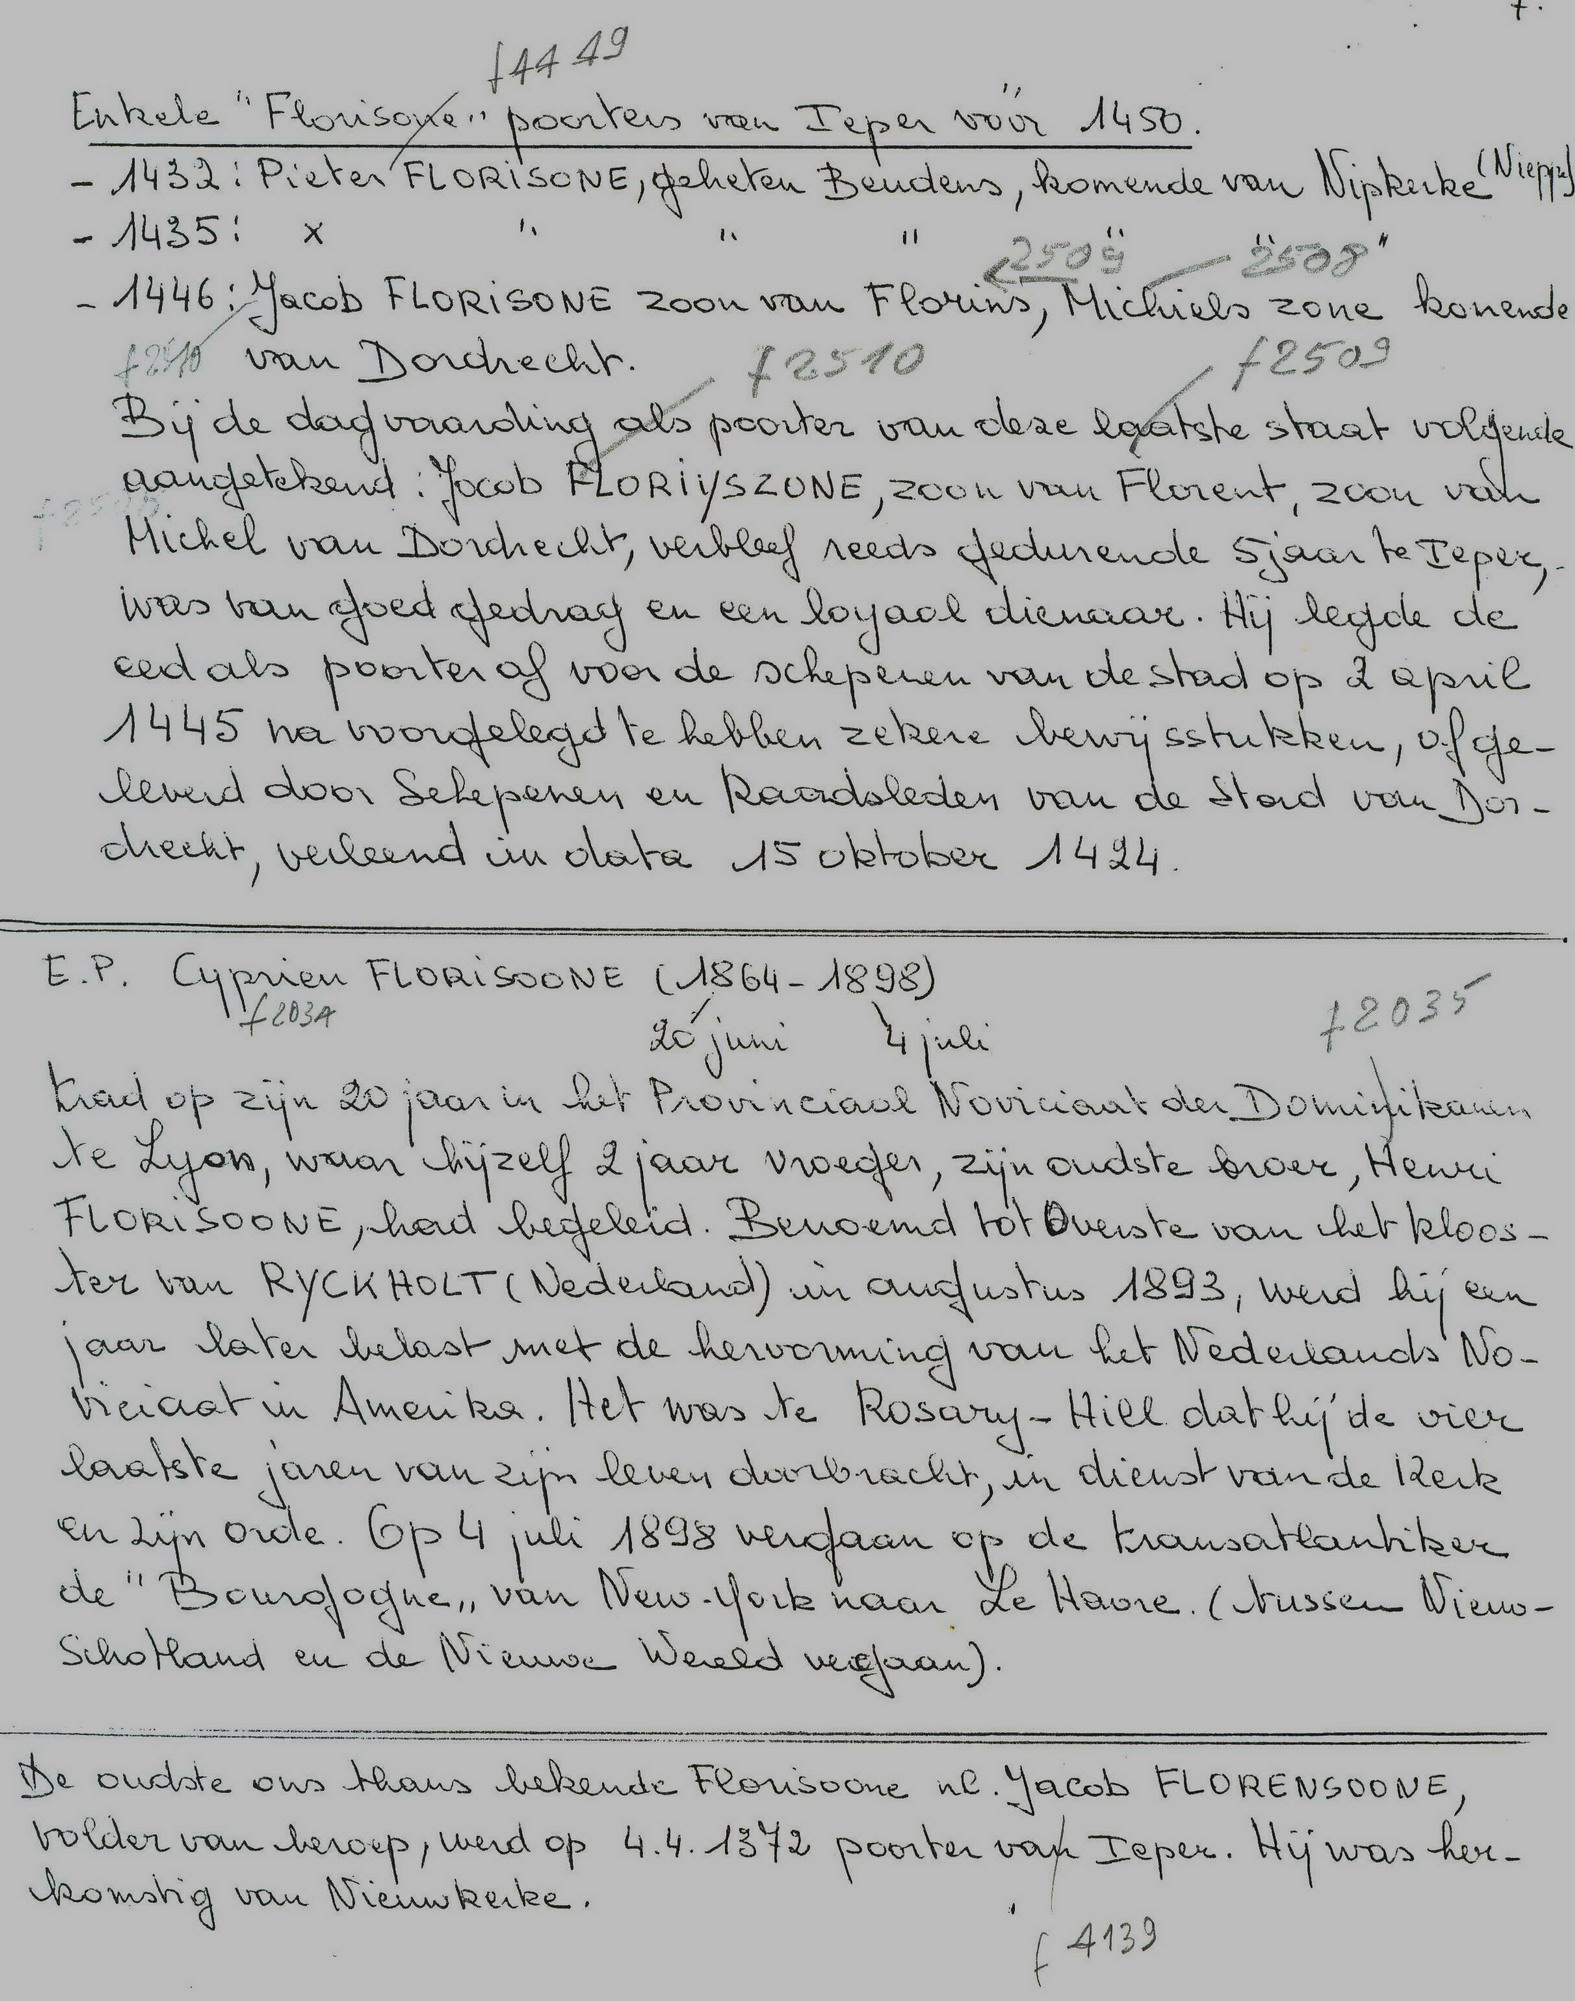 7.
f4449
Enkele "Florisone" poorters van Ieper vóór 1450.
- 1432: Pieter FLORISONE, geheten Beudens, komende van Nipkerke (Nieppe)
- 1435: x " " " " " "
2509 2508
- 1446: Jacob FLORISONE zoon van Florins, Michiels zone komende
f2510 van Dordrecht. f2510 f2509
Bij de dagvaarding als poorter van deze laatste staat volgende
aangetekend: Jocob FLORIYSZONE, zoon van Florent, zoon van
Michel van Dordrecht, verbleef reeds gedurende 5 jaar te Ieper,
was van goed gedrag en een loyaal dienaar. Hij legde de
eed als poorter af voor de schepenen van de stad op 2 april
1445 na voorgelegd te hebben zekere bewijsstukken, afge-
leverd door Schepenen en Raadsleden van de Stad van Dor-
drecht, verleend in data 15 oktober 1424.
E.P. Cyprien FLORISOONE (1864 - 1898)
f2034 20 juni 4 juli f2035
trad op zijn 20 jaar in het Provinciaal Noviciaat der Dominikanen
te Lyon, waar hijzelf 2 jaar vroeger, zijn oudste broer, Henri
FLORISOONE, had begeleid. Benoemd tot Overste van het kloos-
ter van RYCKHOLT (Nederland) in augustus 1893, werd hij een
jaar later belast met de hervorming van het Nederlands No-
viciaat in Amerika. Het was te Rosary-Hill dat hij de vier
laatste jaren van zijn leven doorbracht, in dienst van de Kerk
en zijn orde. Op 4 juli 1898 vergaan op de transatlantiker
de "Bourgogne" van New-York naar Le Havre. (tussen Nieuw-
Schotland en de Nieuwe Wereld vergaan).
De oudste ons thans bekende Florisoone nl. Jacob FLORENSOONE,
volder van beroep, werd op 4.4.1372 poorter van Ieper. Hij was her-
komstig van Nieuwkerke.
f 4139